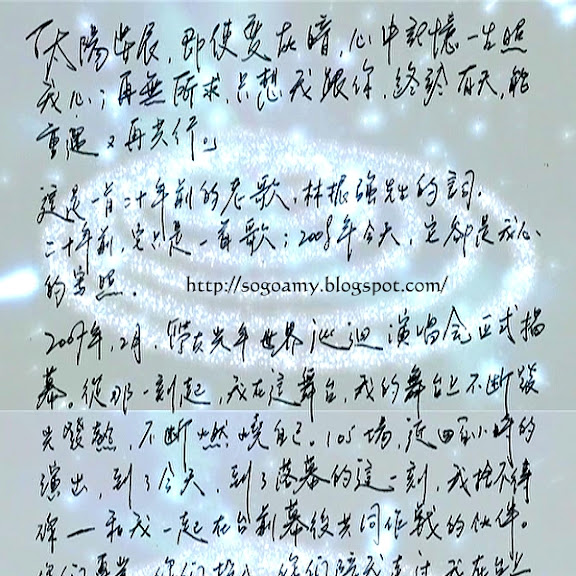 「太陽業展，即使變在暗，心中記憶一生照
我心；再無所求，只想我跟你，終於有天，能
重遇又再共行。」
這是一首二十年前的老歌，林振強先生的詞．
二十年前，它只是一首歌；2009年今天，它卻是我心
的寫照．
http://sogoamy.blogspot.com/
2007年，2月，學友光年世界巡迴演唱會正式揭
幕。從那一刻起，我在這舞台，我的舞台上不斷發
光發熱，不斷燃燒自己。105場，近四百小時的
演出，到了今天，到了落幕的這一刻，我捨不得
你—和我一起在台前幕後共同作戰的伙伴。
你們